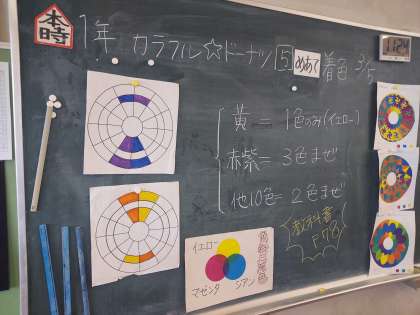 本時
1年 カラフル☆ドーナツ 5 めあて 着色 3/5
黄 = 1色のみ(イエロー)
赤紫 = 3色まぜ
他10色 = 2色まぜ
教科書
P78
イエロー
マゼンタ シアン
色料の三原色